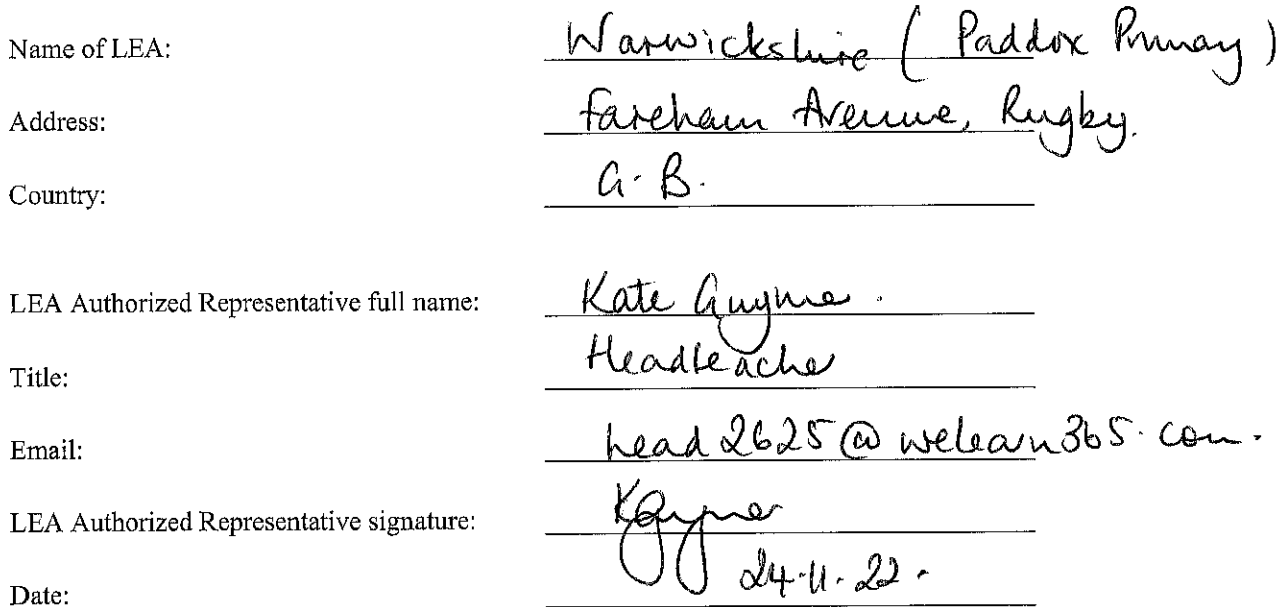 Name of LEA: Warwickshire ( Paddox Primary )
Address: Fareham Avenue, Rugby.
Country: G.B.
LEA Authorized Representative full name: Kate Guymer.
Title: Headteacher
Email: head2625@welearn365.com.
LEA Authorized Representative signature: KGuymer
Date: 24.11.22.